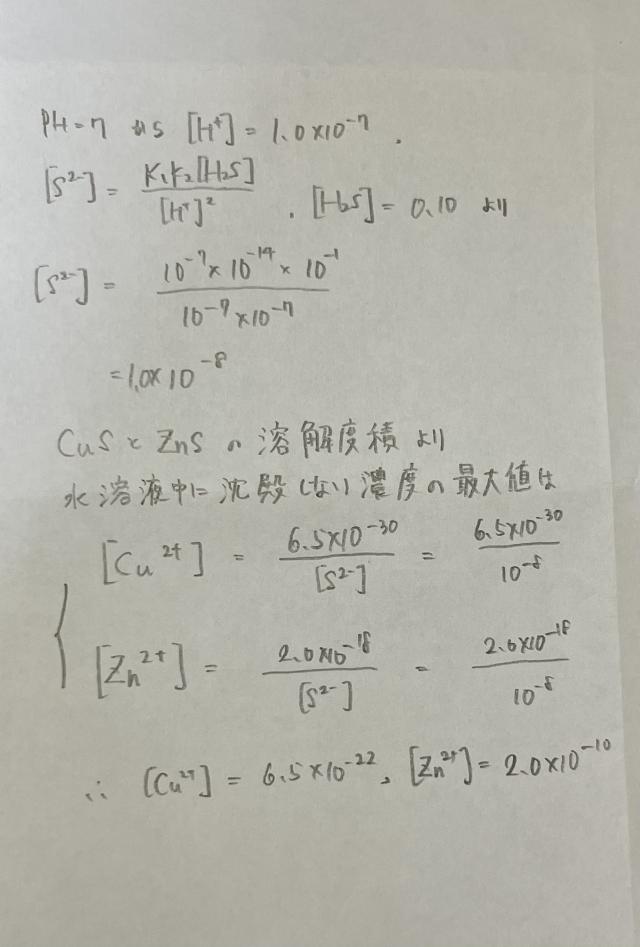 PH=7 から [H⁺] = 1.0×10⁻⁷ .
[S²⁻] = K₁K₂[H₂S] / [H⁺]² . [H₂S] = 0.10 より
[S²⁻] = 10⁻⁷×10⁻¹⁴×10⁻¹ / 10⁻⁷×10⁻⁷
=1.0×10⁻⁸
CuSとZnSの溶解度積より
水溶液中に沈殿しない濃度の最大値は
[Cu²⁺] = 6.5×10⁻³⁰ / [S²⁻] = 6.5×10⁻³⁰ / 10⁻⁸
[Zn²⁺] = 2.0×10⁻¹⁸ / [S²⁻] = 2.0×10⁻¹⁸ / 10⁻⁸
∴ [Cu²⁺] = 6.5×10⁻²², [Zn²⁺] = 2.0×10⁻¹⁰